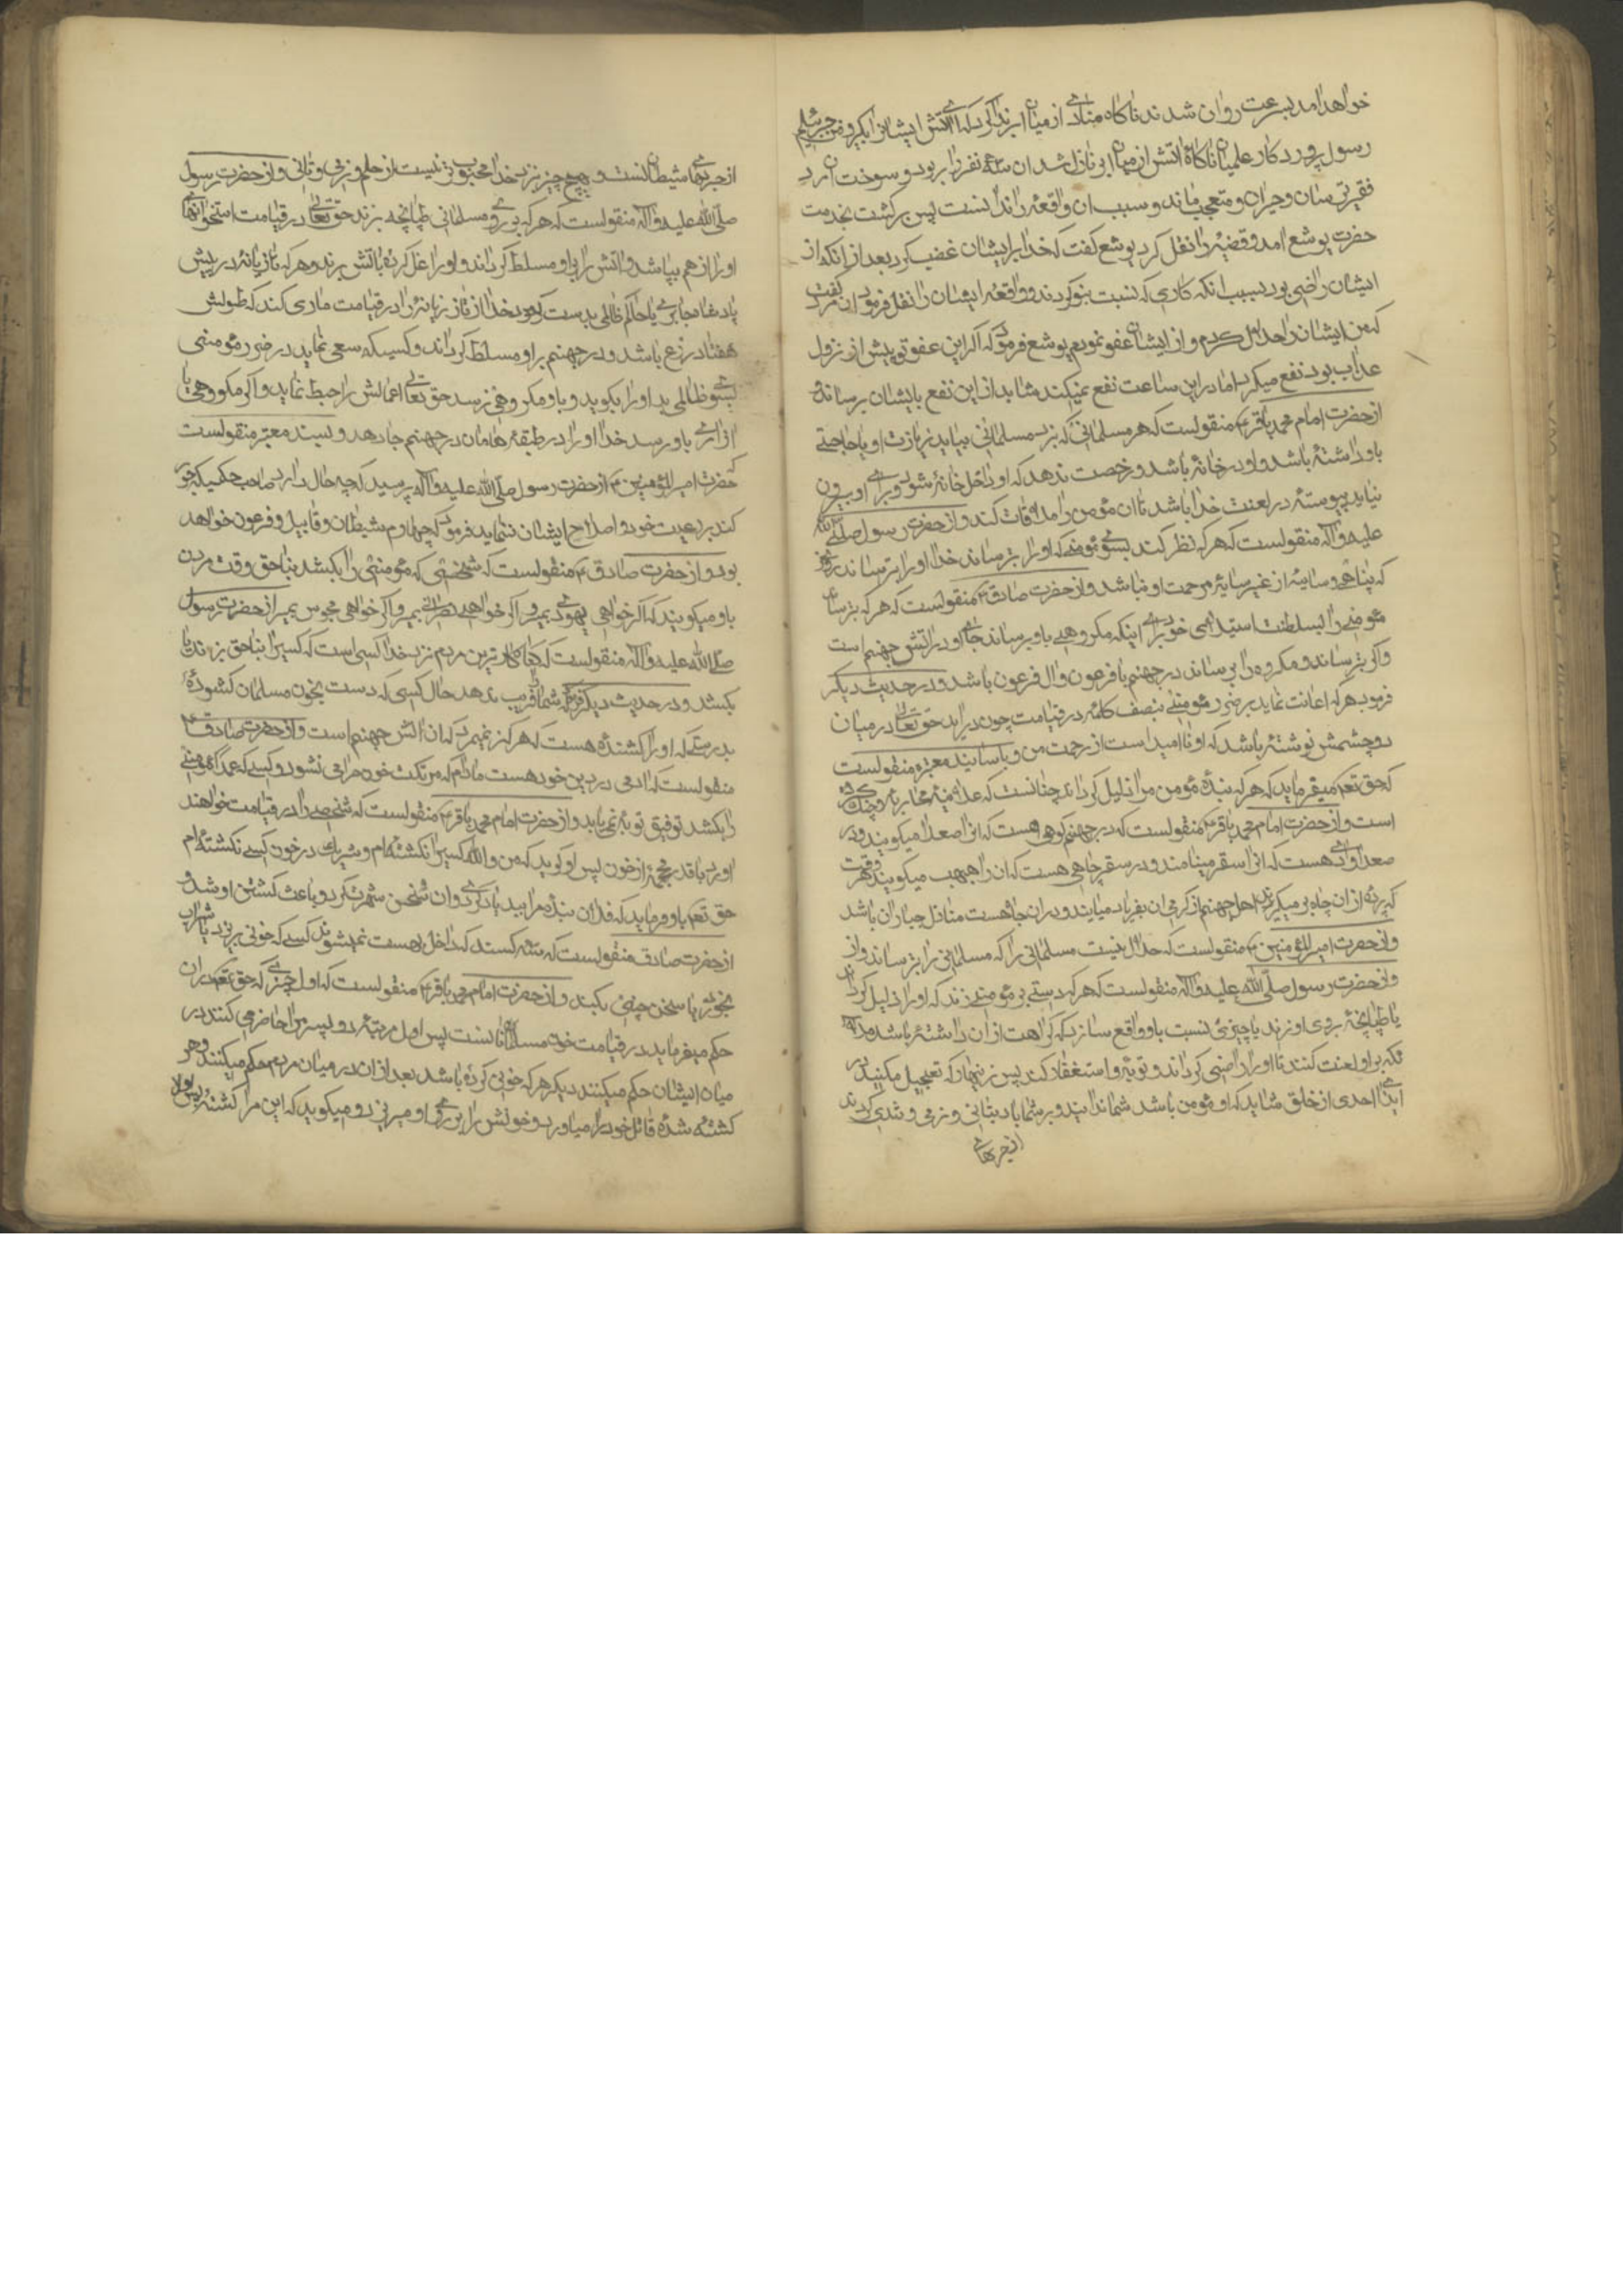 خواهد امد بسرعت روان شدند ناکاه منادی از میان ابر ندا کرد که ای آتش ایشانرا بکیر و من جبرئیلم
رسول پروردکار عالمیان ناکاه اتش از میان ابر نازل شد ان سه نفر را ربود و سوخت ان مرد
فقیر ترسان و حیران و متعجب ماند و سبب ان واقعه را ندانست پس برکشت بخدمت
حضرت یوشع امد و قضیه را نقل کرد یوشع کفت که خدا بر ایشان غضب کرد بعد از انکه از
ایشان راضی بود بسبب انکه کاری که نسبت بتو کردند و واقعه ایشان را نقل فرمود ان مرد کفت
که من ایشانرا حلال کردم و از ایشان عفو نمودم یوشع فرمود که اکر این عفو تو پیش از نزول
عذاب بود نفع میکرد اما در این ساعت نفع نمیکند شاید از این نفع بایشان برساند
از حضرت امام محمد باقر ع منقولست که هر مسلمانی که نزد مسلمانی بیاید بزیارت او یا حاجتی
باو داشته باشد و او در خانه باشد و رخصت ندهد که او داخل خانه شود و برای او بیرون
نیاید پیوسته در لعنت خدا باشد تا ان مؤمن را ملاقات کند و از حضرت رسول صلی الله
علیه واله منقولست که هر که نظر کند بسوی مؤمنی که او را بترساند خدا او را بترساند در روز
که پناهی و سایه از غیر سایه مرحمت او نباشد و از حضرت صادق ع منقولست که هر که بترساند
مؤمنی را بسلطنت استیلای خود برای اینکه مکروهی باو برساند جای او در آتش جهنم است
و اکر بترساند و مکروه را برساند در جهنم با فرعون و ال فرعون باشد و در حدیث دیکر
فرمود هر که اعانت نماید بر ضرر مؤمنی بنصف کلمه در قیامت چون دراید حق تعالی در میان
دو چشمش نوشته باشد که او نا امید است از رحمت من و باسانید معتبره منقولست
که حق تعم میفرماید که هر که بنده مؤمن مرا ذلیل کرداند چنانست که علانیه بمحاربه و جنک کرده
است و از حضرت امام محمد باقر ع منقولست که در جهنم کوهی هست که انرا صعدا میکویند و در
صعدا وادی هست که انرا سقر مینامند و در سقر چاهی هست که ان را هبهب میکویند و هر وقت
که پرده از ان چاه بر میکیرند اهل جهنم از کرمی ان بفریاد میایند و در ان چاه هست منازل جباران باشد
و از حضرت امیر المؤمنین ع منقولست که حلال نیست مسلمانی را که مسلمانی را بترساند و از
و از حضرت رسول صلی الله علیه واله منقولست که هر که دستی بر مؤمنی زند که او را ذلیل کرداند
یا طپانچه بر روی او زند یا چیزی نسبت باو واقع سازد که کراهت از ان داشته باشد ملا
ئکه بر او لعنت کنند تا او را راضی کرداند و توبه و استغفار کند پس زنهار که تعجیل مکنید در
ایذای احدی از خلق شاید که او مؤمن باشد شما ندانید و بر شما باد بتانی و نرمی و تندی کردند
از حربهای
از حربهای شیطانست و هیچ چیز نزد خدا محبوب تر نیست از حلم و نرمی و تانی و از حضرت رسول
صلی الله علیه واله منقولست که هر که بر روی مسلمانی طپانچه بزند حق تعالی در قیامت استخوانهای
او را از هم بپاشد و اتش را بر او مسلط کرداند و او را غل کرده باتش برند و هر که تازیانه در پیش
پادشاه جابری یا حاکم ظالمی بدست کیرد خدا از ان تازیانه را در قیامت ماری کند که طولش
هفتاد ذرع باشد و در جهنم بر او مسلط کرداند و کسیکه سعی نماید در ضرر مؤمنی
بسوی ظالمی بد او را بکوید و باو مکروهی نرسد حق تعالی اعمالش را حبط نماید و اکر مکروهی یا
ازاری باو رسد خدا او را در طبقه هامان در جهنم جا دهد و بسند معتبر منقولست
که حضرت امیر المؤمنین ع از حضرت رسول صلی الله علیه واله پرسید که چه حال دارد صاحب حکمیکه جور
کند بر رعیت خود و اصلاح ایشان ننماید فرمود که چهارم شیطان و قابیل و فرعون خواهد
بود و از حضرت صادق ع منقولست که شخصی که مؤمنی را بکشد بناحق وقت مردن
باو میکویند که اکر خواهی یهودی بمیر و اکر خواهی نصرانی بمیر و اکر خواهی مجوس بمیر از حضرت رسول
صلی الله علیه واله منقولست که جفاکار ترین مردم نزد خدا کسی است که کسیرا بناحق بزند یا
بکشد و در حدیث دیکر فرمود که شما فریب ندهد حال کسی که دست بخون مسلمان کشوده
بدرستی که او را کشنده هست که هرکز نمیرد که ان اتش جهنم است و از حضرت صادق ع
منقولست که ادمی در دین خود هست مادام که مرتکب خون حرامی نشود و کسی که عمدا مؤمنی
را بکشد توفیق توبه نمی یابد و از حضرت امام محمد باقر ع منقولست که شخصی را در قیامت خواهند
اورد با قدر محجمه از خون پس او کوید که من والله کسیرا نکشته ام و شریک در خون کسی نکشته ام
حق تعم باو فرماید که فلان بنده مرا بید یاد کردی و ان سخن شهرت کرد و باعث کشتن او شد و
از حضرت صادق منقولست که سه کسند که داخل بهشت نمیشوند کسی که خونی بریزد یا شراب
بخورد یا سخن چینی بکند و از حضرت امام محمد باقر ع منقولست که اول چیزی که حق تعم در ان
حکم میفرماید در قیامت خون مسلمانانست پس اول مرتبه دو پسر ادم را حاضر می کنند در
میان ایشان حکم میکنند دیکر هر که خونی کرده باشد بعد از ان در میان مردم حکم میکنند و هر
کشته شده قاتل خود را میاورد و خونش را بر روی او میریزد و میکوید که این مرا کشته